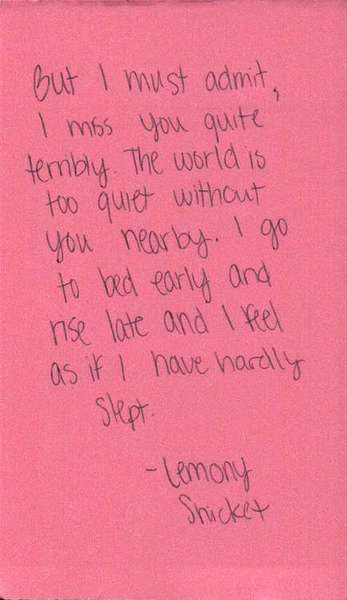 But I must admit,
I miss you quite
terribly. The world is
too quiet without
you nearby. I go
to bed early and
rise late and I feel
as if I have hardly
slept.
-Lemony
Snicket